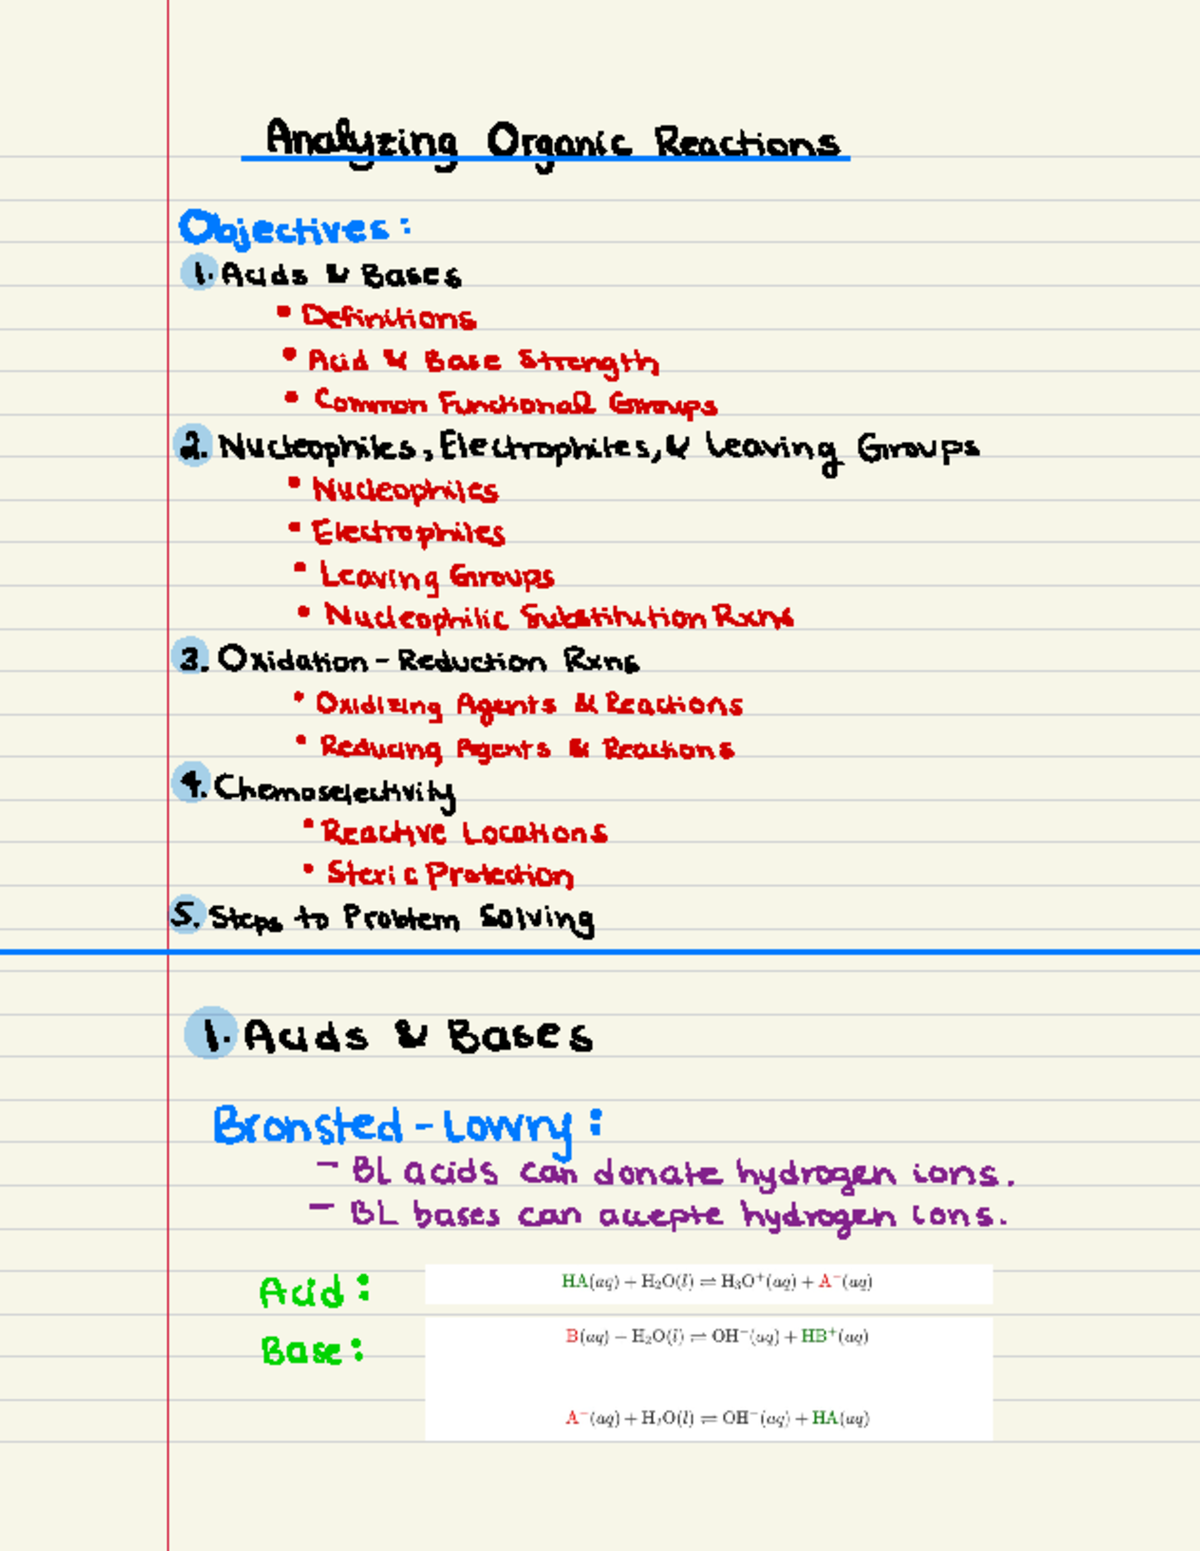 Analyzing Organic Reactions
Objectives:
1. Acids & Bases
• Definitions
• Acid & Base Strength
• Common Functional Groups
2. Nucleophiles, Electrophiles, & Leaving Groups
• Nucleophiles
• Electrophiles
• Leaving Groups
• Nucleophilic Substitution Rxns
3. Oxidation - Reduction Rxns
• Oxidizing Agents & Reactions
• Reducing Agents & Reactions
4. Chemoselectivity
• Reactive Locations
• Steric Protection
5. Steps to Problem Solving
1. Acids & Bases
Bronsted - Lowry:
- BL acids can donate hydrogen ions.
- BL bases can accepte hydrogen ions.
Acid: HA(aq) + H₂O(l) ⇌ H₃O⁺(aq) + A⁻(aq)
Base: B(aq) − H₂O(l) ⇌ OH⁻(aq) + HB⁺(aq)
A⁻(aq) + H₂O(l) ⇌ OH⁻(aq) + HA(aq)